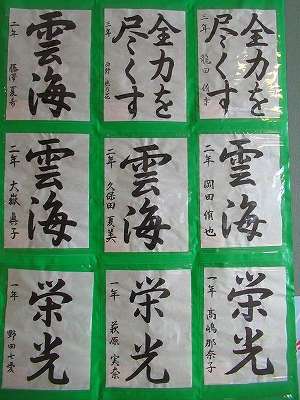 全力を
尽くす
三年 龍田
全力を
尽くす
三年
雲海
二年 藤澤 夏希
雲海
二年 岡田 侑也
雲海
二年 久保田 夏美
雲海
二年 大嶽 真子
栄光
一年 高嶋 那奈子
栄光
一年 萩原 実奈
栄光
一年 野田 七愛